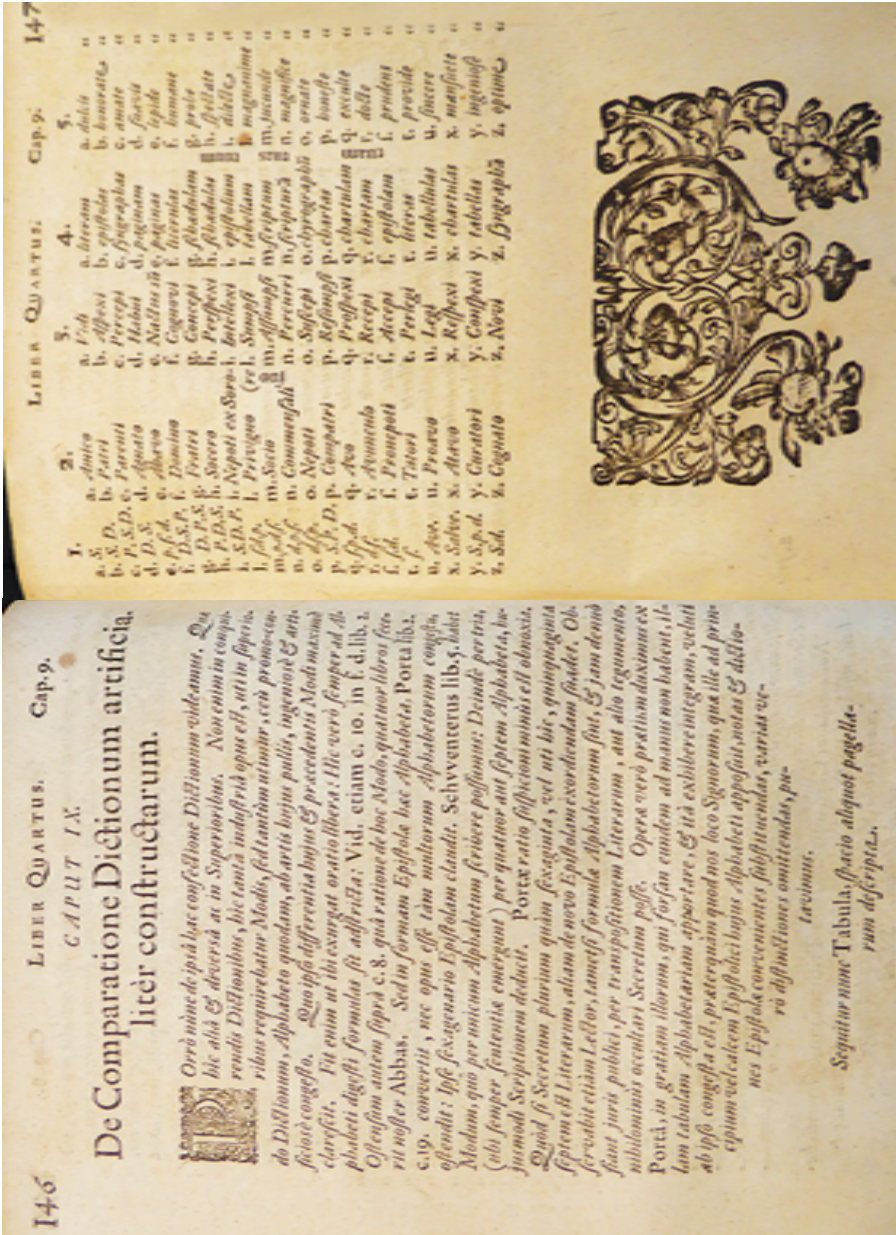 146 LIBER QUARTUS. Cap. 9.
CAPUT IX.
De Comparatione Dictionum artificia,
litèr constructarum.
POrrò nunc de ipsâ hac confectione Dictionum videamus. Quæ
hic alia & diversa ac in Superioribus. Non enim in compa-
rendis Dictionibus, hic tantâ industriâ opus est, uti in superio-
ribus requirebatur Modis, sed tantùm utimur, ceù promo-con-
do Dictionum, Alphabeto quodam, ab artis hujus peritis, ingeniosè & arti-
ficiosè congesto. Quo ipso differentia hujus & præcedentis Modi maximè
clarescit. Fit enim ut ibi exurgat oratio libera: Hic verò semper ad Al-
phabeti digesti formulas sit adstricta: Vid. etiam c. 10. in f. d. lib. 2.
Ostensum autem suprà c. 8. quâ ratione de hoc Modo, quatuor libros scri-
rit noster Abbas. Sed in formam Epistolæ hæc Alphabeta, Porta lib. 2.
c. 19. convertit, nec opus esse tàm multorum Alphabetorum congestu,
ostendit: Ipse sexagenario Epistolam claudit. Schvventerus lib. 5. habet
Modum, quò per unicum Alphabetum scribere possumus: Deinde per tria,
(ubi semper sententiæ emergunt) per quatuor aut septem Alphabeta, hu-
jusmodi Scriptionem deducit. Portæ ratio suspicioni minùs est obnoxia.
Quòd si Secretum plurium quàm sexaginta, vel uti hic, quinquaginta
septem est Literarum, aliam de novo Epistolam exordiendam suadet. Ob-
servabit etiam Lector, tametsi formulæ Alphabetorum sint, & jam demùm
fiant juris publici, per transpositionem Literarum, aut alio tegumento,
nihilominùs occultari Secretum posse. Operæ verò pretium duximus ex
Portâ, in gratiam illorum, qui forsan eundem ad manus non habent, il-
lam tabulam Alphabetariam apportare, & ità exhibere integram, veluti
ab ipso congesta est, præterquàm quod nos loco Signorum, quæ ille ad prin-
cipium vel calcem Epistolici hujus Alphabeti apposuit, notas & dictio-
nes Epistolæ convenientes substituendas, varias ve-
rò distinctiones omittendas, pu-
tavimus.
Sequitur nunc Tabula, spacio aliquot pagella-
rum descripta.
LIBER QUARTUS. Cap. 9. 147
1. 2. 3. 4. 5.
a. S. a. Amico a. Vidi a. literam a. dulcis "
b. S. D. b. Patri b. Aspexi b. epistolas b. honoratas "
c. P. S. D. c. Parenti c. Percepi c. syngraphas c. amatæ "
d. D. S. d. Agnato d. Habui d. paginam d. suavis "
e. p. s. d. e. Abavo e. Nactus sũ e. paginas e. lepidæ "
f. D. S. P. f. Domino f. Cognovi f. literulas f. humanæ "
g. D. P. S. g. Fratri g. Concepi g. schædulam g. probæ "
h. P. D. S. h. Socero h. Prospexi h. schædulas h. spectatæ "
i. S. D. P. i. Nepoti ex Soro- i. Intellexi i. epistolium i. dilectæ "
l. s. d. p. l. Privigno (re l. Sumpsi l. tabellam l. magnanimæ "
m. p. d. s. m. Socio m. Assumpsi m. scriptum m. jucundæ "
n. d. p. s. n. Commensali n. Percurri n. scripturã n. magnificæ "
o. d. s. p. o. Nepoti o. Suscepi o. chyrographũ o. ornatæ "
p. S. P. D. p. Compatri p. Resumpsi p. chartas p. honestæ "
q. s. p. d. q. Avo q. Prospexi q. chartulam q. excultæ "
r. d. s. r. Avunculo r. Recepi r. chartam r. doctæ "
s. s. d. s. Pronepoti s. Accepi s. epistolam s. prudens "
t. s. t. Tutori t. Perlegi t. literas t. providæ "
u. Ave. u. Proavo u. Legi u. tabellulas u. sinceræ "
x. Salve. x. Atavo x. Respexi x. chartulas x. mansuetæ "
y. S. p. d. y. Curatori y. Conspexi y. tabellas y. ingeniosæ "
z. S. d. z. Cognato z. Novi z. syngraphã z. optimæ "